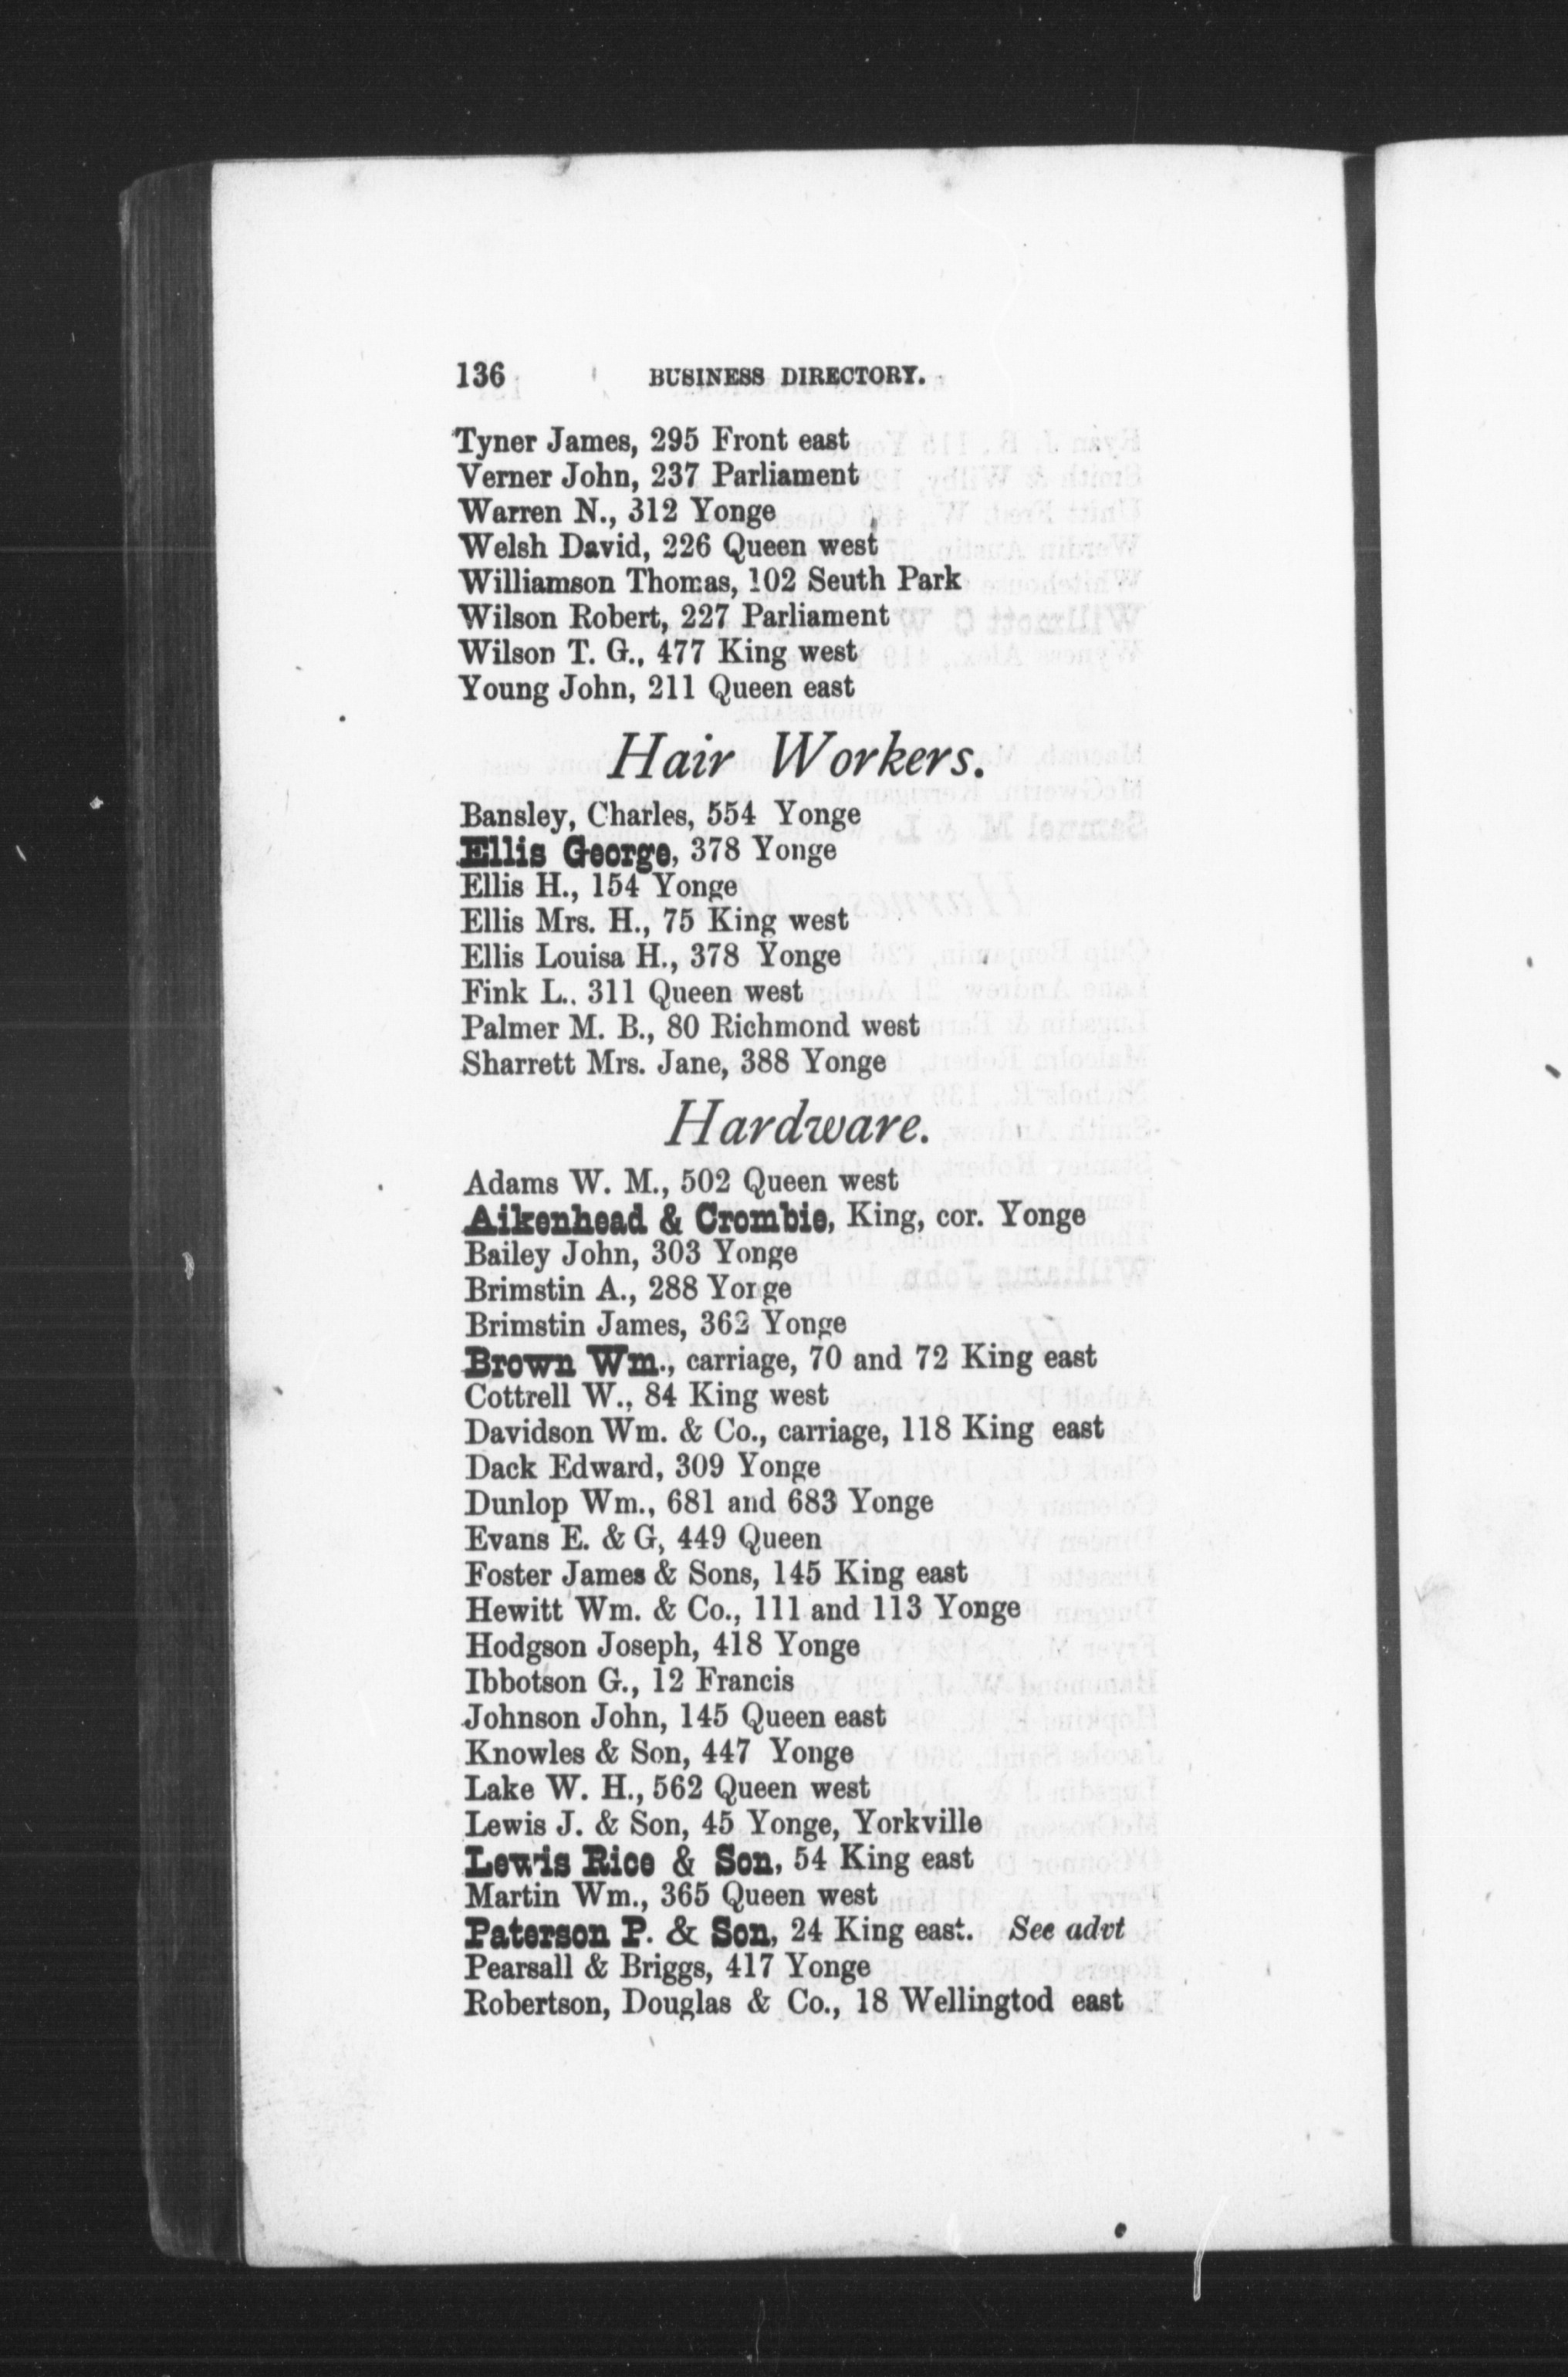 136 BUSINESS DIRECTORY.
Tyner James, 295 Front east
Verner John, 237 Parliament
Warren N., 312 Yonge
Welsh David, 226 Queen west
Williamson Thomas, 102 Seuth Park
Wilson Robert, 227 Parliament
Wilson T. G., 477 King west
Young John, 211 Queen east
Hair Workers.
Bansley, Charles, 554 Yonge
Ellis George, 378 Yonge
Ellis H., 154 Yonge
Ellis Mrs. H., 75 King west
Ellis Louisa H., 378 Yonge
Fink L., 311 Queen west
Palmer M. B., 80 Richmond west
Sharrett Mrs. Jane, 388 Yonge
Hardware.
Adams W. M., 502 Queen west
Aikenhead & Crombie, King, cor. Yonge
Bailey John, 303 Yonge
Brimstin A., 288 Yonge
Brimstin James, 362 Yonge
Brown Wm., carriage, 70 and 72 King east
Cottrell W., 84 King west
Davidson Wm. & Co., carriage, 118 King east
Dack Edward, 309 Yonge
Dunlop Wm., 681 and 683 Yonge
Evans E. & G, 449 Queen
Foster James & Sons, 145 King east
Hewitt Wm. & Co., 111 and 113 Yonge
Hodgson Joseph, 418 Yonge
Ibbotson G., 12 Francis
Johnson John, 145 Queen east
Knowles & Son, 447 Yonge
Lake W. H., 562 Queen west
Lewis J. & Son, 45 Yonge, Yorkville
Lewis Rice & Son, 54 King east
Martin Wm., 365 Queen west
Paterson P. & Son, 24 King east. See advt
Pearsall & Briggs, 417 Yonge
Robertson, Douglas & Co., 18 Wellingtod east